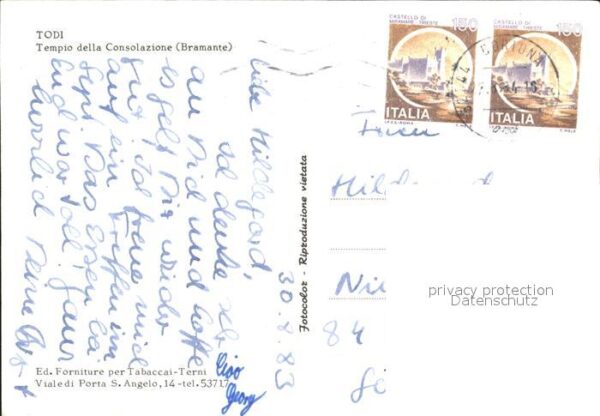 TODI
Tempio della Consolazione (Bramante)
30.8.83
Liebe Hildegard,
ich denke sehr
an Dich und hoffe
es geht Dir wieder
gut. Ich freue mich
auf ein Treffen im
Sept. Das Essen bei
Euch war toll, ganz
herzlich Deine
Ciao
Georg
Ed. Forniture per Tabaccai-Terni
Viale di Porta S. Angelo, 14 -tel. 53717
Fotocolor - Riproduzione vietata
CASTELLO DI
MIRAMARE TRIESTE
150
ITALIA
CASTELLO DI
MIRAMARE TRIESTE
150
ITALIA
CORTONA
Frau
Hil
Nie
84
privacy protection
Datenschutz